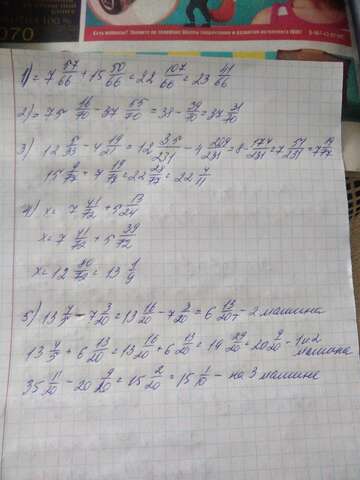 1) = 7 57/66 + 15 50/66 = 22 107/66 = 23 41/66
2) = 75 16/70 - 37 55/70 = 38 - 39/70 = 37 31/70
3) 12 5/33 - 4 19/21 = 12 35/231 - 4 209/231 = 8 - 174/231 = 7 57/231 = 7 19/77
15 9/77 + 7 19/77 = 22 28/77 = 22 4/11
4) x = 7 41/72 + 5 13/24
x = 7 41/72 + 5 39/72
x = 12 80/72 = 13 1/9
5) 13 4/5 - 7 3/20 = 13 16/20 - 7 3/20 = 6 13/20 т - 2 машина
13 4/5 + 6 13/20 = 13 16/20 + 6 13/20 = 19 29/20 = 20 9/20 - 1 и 2 машина
35 11/20 - 20 9/20 = 15 2/20 = 15 1/10 - на 3 машине